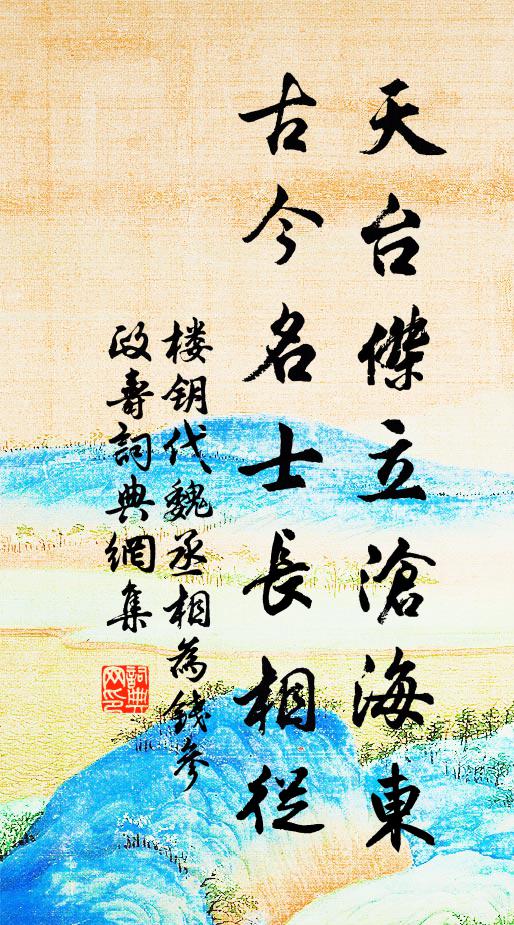 天台傑立滄海東
古今名士長相從
楼钥代魏丞相為錢參
政壽詞典網集
詞典
网印